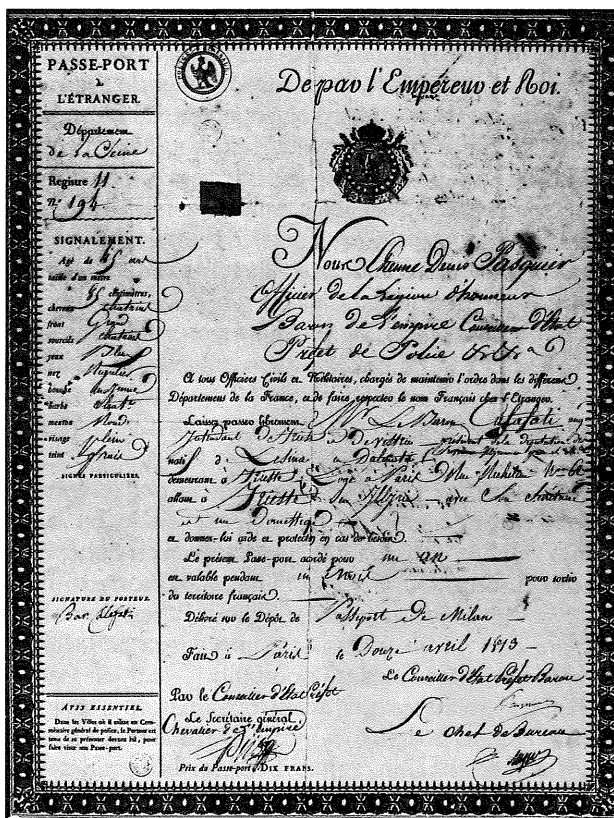 PASSE-PORT
à
L'ÉTRANGER.
Département
de la Seine
Registre 11
n.º 194
SIGNALEMENT.
Agé de 45 ans
taille d'un mètre
85 centimètres,
cheveux chatains
front Grand
sourcils chatains
yeux bleus
nez Régulier
bouche moyenne
barbe chat.e
menton Rond
visage plein
teint frais
SIGNES PARTICULIERS.
SIGNATURE DU PORTEUR
Bar Calafati
AVIS ESSENTIEL.
Dans les Villes où il existe un Com-
missaire général de police, le Porteur est
tenu de se présenter devant lui, pour
faire viser son Passe-port.
De par l'Empereur et Roi.
Nous Etienne Denis Pasquier
Officier de la Légion d'honneur
Baron de l'empire Conseiller d'Etat
Préfet de Police &c &c a
A tous Officiers Civils et Militaires, chargés de maintenir l'ordre dans les différens
Départemens de la France, et de faire respecter le nom Français chez l'Etranger.
Laissez passer librement Mr Le Baron Calafati
Intendant de président de la Députation
natif de Lesina en Dalmatie
demeurant à Trieste Logé à Paris Rue
allant à Trieste en Illyrie avec Son Secrétaire
et un Domestique
et donnez-lui aide et protection en cas de besoin.
Le présent Passe-port accordé pour un an
est valable pendant un mois pour sortir
du territoire français.
Délivré sur le Dépôt de Passeport de Milan
Fait à Paris le Douze avril 1813
Le Conseiller d'Etat Préfet Baron
Par le Conseiller d'Etat Préfet
Le Secrétaire général
Chevalier de l'empire
Le chef de Bureau
Prix du Passe-port: DIX FRANS.